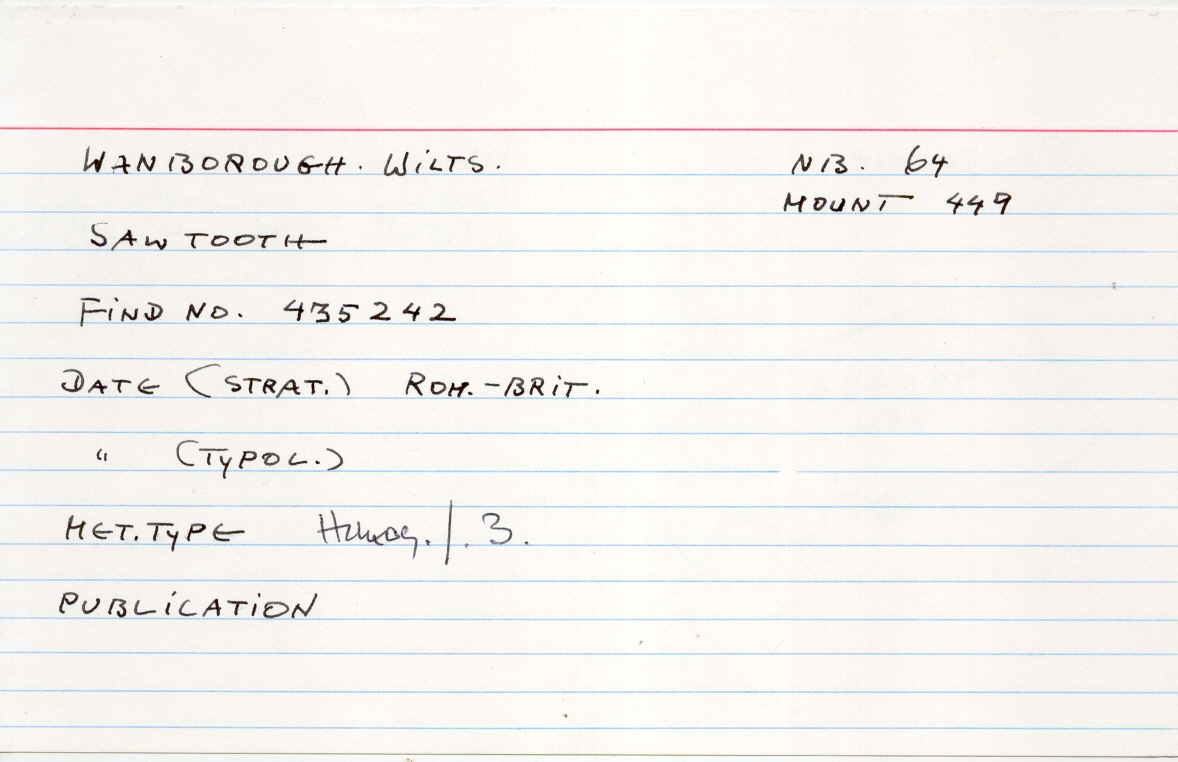 WANBOROUGH. WILTS.
NB. 64
MOUNT 449
SAW TOOTH
FIND NO. 435242
DATE (STRAT.) ROM.-BRIT.
" (TYPOL.)
MET. TYPE Homog. /. 3.
PUBLICATION